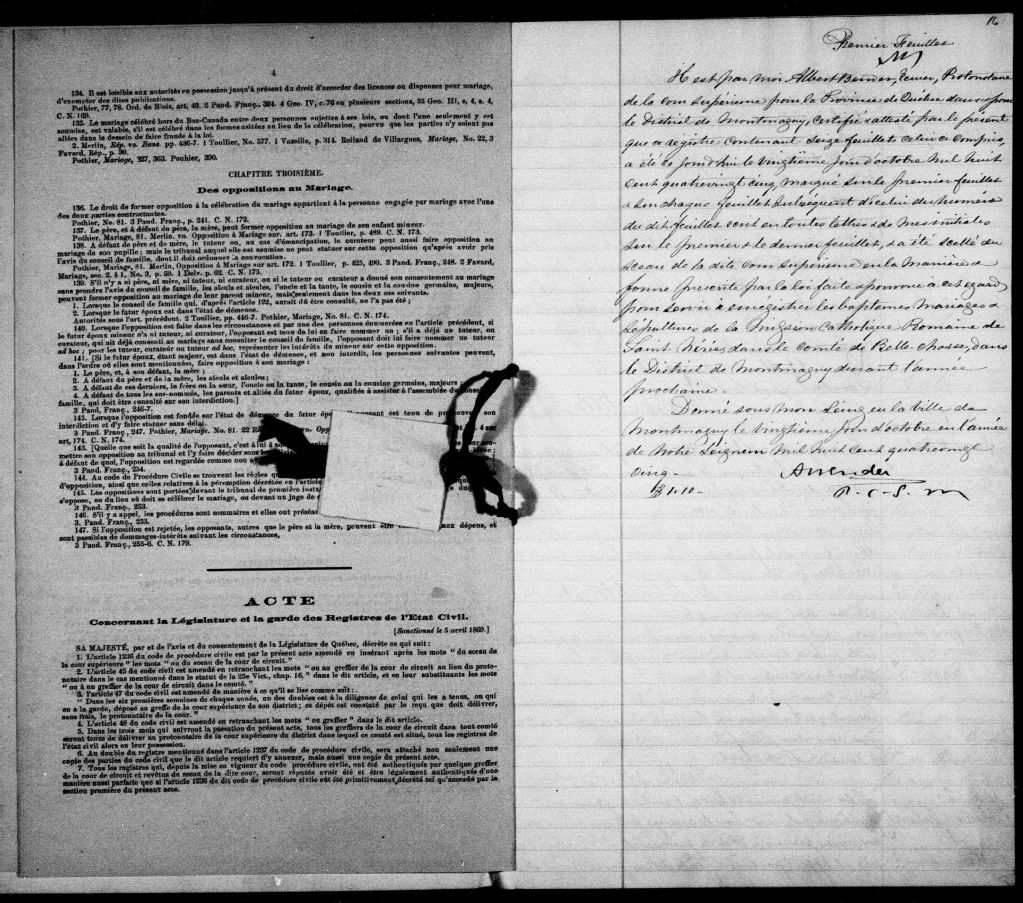 4
134. Il est loisible aux autorités en possession jusqu'à présent du droit d'accorder des licences ou dispenses pour mariage,
d'exempter des dites publications.
Pothier, 77, 78. Ord. de Blois, art. 40. 2 Pand. Franç., 324. 4 Geo. IV, c. 76 en plusieurs sections, 35 Geo. III, c. 4, s. 4,
C. N. 169.
135. Le mariage célébré hors du Bas-Canada entre deux personnes sujettes à ses lois, ou dont l'une seulement y est
soumise, est valable, s'il est célébré dans les formes usitées au lieu de la célébration, pourvu que les parties n'y soient pas
allées dans le dessein de faire fraude à la loi.
2 Merlin, Rép. vo. Bans. pp. 436-7. 1 Toullier, No. 577. 1 Vazeille, p. 314. Rolland de Villargues, Mariage, No. 22, 3
Favard. Rép., p. 30.
Pothier, Mariage, 327, 363. Pouhier, 390.
CHAPITRE TROISIÈME.
Des oppositions au Mariage.
136. Le droit de former opposition à la célébration du mariage appartient à la personne engagée par mariage avec l'une
des deux parties contractantes.
Pothier, No. 81. 3 Pand. Franç., p. 241. C. N. 172.
137. Le père, et à défaut du père, la mère, peut former opposition au mariage de son enfant mineur.
Pothier, Mariage, 81. Merlin. vo. Opposition à Mariage sur. art. 173. 1 Toullier, p. 489. C. N. 173.
138. A défaut de père et de mère, le tuteur ou, au cas d'émancipation, le curateur peut aussi faire opposition au
mariage de son pupille; mais le tribunal auquel elle est soumise ne peut statuer sur cette opposition qu'après avoir pris
l'avis du conseil de famille, dont il doit ordonner la convocation.
Pothier, Mariage, 81. Merlin, Opposition à Mariage sur art. 172. 1 Toullier, p. 425, 490. 3 Pand. Franç., 248. 2 Favard,
Mariage, sec. 2, § 1, No. 3, p. 59. 1 Delv. p. 62. C. N. 175.
139. S'il n'y a ni père, ni mère, ni tuteur, ni curateur, ou si le tuteur ou curateur a donné son consentement au mariage
sans prendre l'avis du conseil de famille, les aïeuls et aïeules, l'oncle et la tante, le cousin et la cousine germains, majeurs,
peuvent former opposition au mariage de leur parent mineur, mais seulement dans les deux cas suivants.
1. Lorsque le conseil de famille qui, d'après l'article 122, aurait du être consulté, ne l'a pas été;
2. Lorsque le futur époux est dans l'état de démence.
Autorités sous l'art. précédent. 2 Toullier, pp. 446-7. Pothier, Mariage, No. 81. C. N. 174.
140. Lorsque l'opposition est faite dans les circonstances et par une des personnes énumérées en l'article précédent, si
le futur époux mineur n'a ni tuteur, ni curateur, l'opposant est tenu de lui en faire nommer un; s'il a déjà un tuteur ou
curateur, qui ait déjà consenti au mariage sans consulter le conseil de famille, l'opposant doit lui faire nommer un tuteur
ad hoc; pour les tuteur, curateur ou tuteur ad hoc, représenter les intérêts du mineur sur cette opposition.
141. [Si le futur époux, étant majeur, est dans l'état de démence, et non interdit, les personnes suivantes peuvent,
dans l'ordre où elles sont mentionnées, faire opposition à son mariage:
1. Le père, et, à son défaut, la mère;
2. A défaut du père et de la mère, les aïeuls et aïeules;
3. A défaut de ces derniers, le frère ou la sœur, l'oncle ou la tante, le cousin ou la cousine germains, majeurs;
4. A défaut de tous les sus-nommés, les parents et alliés du futur époux, qualifiés à assister à l'assemblée du
famille, qui doit être consulté sur son interdiction.]
3 Pand. Franç., 246-7.
142. Lorsque l'opposition est fondée sur l'état de démence du futur époux, l'opposant est tenu de promouvoir son
interdiction et d'y faire statuer sans délai.
3 Pand. Franç., 247. Pothier, Mariage. No. 81. 22
art, 174. C. N. 174.
143. [Quelle que soit la qualité de l'opposant, c'est à lui à
mettre son opposition au tribunal et l'y faire décider
à défaut de quoi, l'opposition est regardée comme non
3 Pand. Franç., 254.
144. Au code de Procédure Civile se trouvent les règles
d'opposition, ainsi que celles relatives à la péremption décrétée en l'article
145. Les oppositions sont portées devant le tribunal de première
s'oppose, ou du lieu où doit se célébrer le mariage, ou devant un juge de
3 Pand. Franç., 253.
146. S'il y a appel, les procédures sont sommaires et elles ont
3. Pand. Franç., 253.
147. Si l'opposition est rejetée, les opposants, autres que le père et la mère, peuvent être aux dépens, et
sont passibles de dommages-intérêts suivant les circonstances,
3 Pand. Franç., 255-6. C. N. 179.
ACTE
Concernant la Législature et la garde des Registres de l'Etat Civil.
[Sanctionné le 5 avril 1869.]
SA MAJESTÉ, par et de l'avis et du consentement de la Législature de Québec, décrète ce qui suit:
1. L'article 1236 du code de procédure civile est par le présent acte amendé en insérant après les mots " du sceau de
la cour supérieure " les mots " ou du sceau de la cour de circuit."
2. L'article 45 du code civil est amendé en retranchant les mots " ou au greffier de la cour de circuit au lieu du proto-
notaire dans le cas mentionné dans le statut de la 25e Vict., chap. 16," dans le dit article, et en leur substituant les mots
" ou à un greffier de la cour de circuit dans le comté."
3. l'article 47 du code civil est amendé de manière à ce qu'il se lise comme suit:
" Dans les six premières semaines de chaque année, un des doubles est à la diligence de celui qui les a tenus, ou qui
en a la garde, déposé au greffe de la cour supérieure de son district; ce dépôt est constaté par le reçu que doit délivrer,
sans frais, le protonotaire de la cour."
4. L'article 48 du code civil est amendé en retranchant les mots " ou greffier " dans le dit article.
5. Dans les trois mois qui suivront la passation du présent acte, tous les greffiers de la cour de circuit dans tout comté
seront tenus de délivrer au protonotaire de la cour supérieure du district dans lequel ce comté est situé, tous les registres de
l'état civil alors en leur possession.
6. Au double du registre mentionné dans l'article 1237 du code de procédure civile, sera attaché non seulement une
copie des parties du code civil que le dit article requiert d'y annexer, mais aussi une copie du présent acte.
7. Tous les registres qui, depuis la mise en vigueur du code procédure civile, ont été authentiqués par quelque greffier
de la cour de circuit et revêtus du sceau de la dite cour, seront réputés avoir été et être légalement authentiqués d'une
manière aussi parfaite que si l'article 1236 du dit code de procédure civile eût été primitivement décrété tel qu'amendé par la
section première du présent acte.
Premier Feuillet
Il est par moi Albert Bender, Ecuier, Protonotaire
de la cour supérieure pour la Province de Québec dans & pour
le District de Montmagny, certifié & attesté par le présent
que ce registre contenant seize feuillets celui ci compris,
a été ce jourd'hui le vingtième jour d'octobre mil huit
cent quatrevingt cinq, marqué sur le premier feuillet
& sur chaque feuillet subséquent d'icelui du numéro
du dit feuillet écrit en toutes lettres & de mes initiales
sur le premier & le dernier feuillet, & a été scellé du
sceau de la dite cour supérieure en la manière &
forme presente par la loi faite & pourvue à cet égard
pour servir à enregistrer les baptêmes mariages &
sépultures de la mission Catholique Romaine de
Saint Nérée, dans le Comté de Bellechasse, dans
le District de Montmagny durant l'année
prochaine.
Donné sous mon seing en la ville de
Montmagny le vingtième jour d'octobre en l'année
de Notre Seigneur mil huit cent quatrevingt
cinq.
$1.10-
A. Bender
P. C. S. M